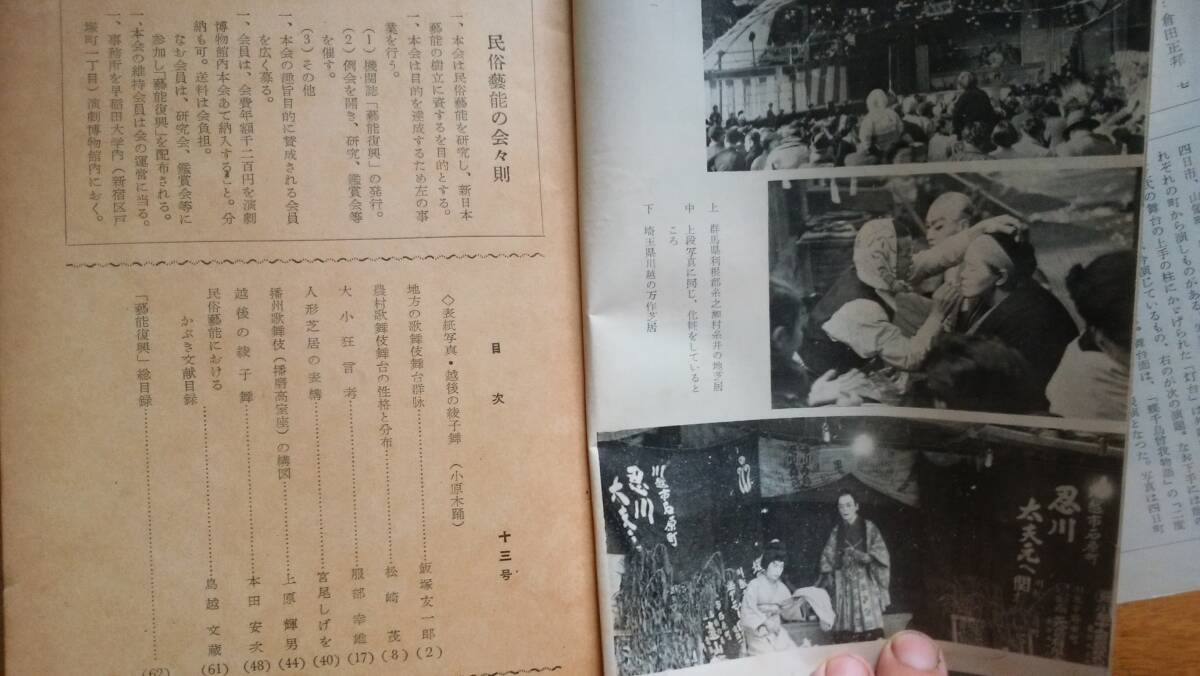 倉田正邦 七
四日市、
れぞれの町から演しものがあ
氏の舞台の上手の柱にかゝげられた「灯台」
演じているもの、右のが次の演題。なお下手には
舞台面は、「蝶千鳥曽我物語」の「二度
表演となった。写真は四日町
上 群馬県利根郡糸之瀬村糸井の地芝居
中 上段写真に同じ、化粧をしていると
ころ
下 埼玉県川越の万作芝居
川越市石原町
忍川
太夫
川越市石原町
忍川
太夫元へ
民俗藝能の会々則
一、本会は民俗藝能を研究し、新日本
藝能の樹立に資するを目的とする。
一、本会は目的を達成するため左の事
業を行う。
(1) 機関誌「藝能復興」の発行。
(2) 例会を開き、研究、鑑賞会等
を催す。
(3) その他
一、本会の趣旨目的に賛成される会員
を広く募る。
一、会員は、会費年額千二百円を演劇
博物館内本会あて納入すること。分
納も可。送料は会負担。
なお会員は、研究会、鑑賞会等に
参加し「藝能復興」を配布される。
一、本会の維持会員は会の運営に当る。
一、事務所を早稲田大学内(新宿区戸
塚町一丁目)演劇博物館内におく。
目次 十三号
◇表紙写真・越後の綾子舞 (小原木踊)
地方の歌舞伎舞台群詠……飯塚友一郎(2)
農村歌舞伎舞台の性格と分布……松崎茂(8)
大小狂言考……服部幸雄(17)
人形芝居の表構……宮尾しげを(40)
播州歌舞伎(播磨高室座)の構図……上原輝男(44)
越後の綾子舞……本田安次(48)
民俗藝能における
かぶき文献目録……鳥越文蔵(61)
「藝能復興」総目録……(62)